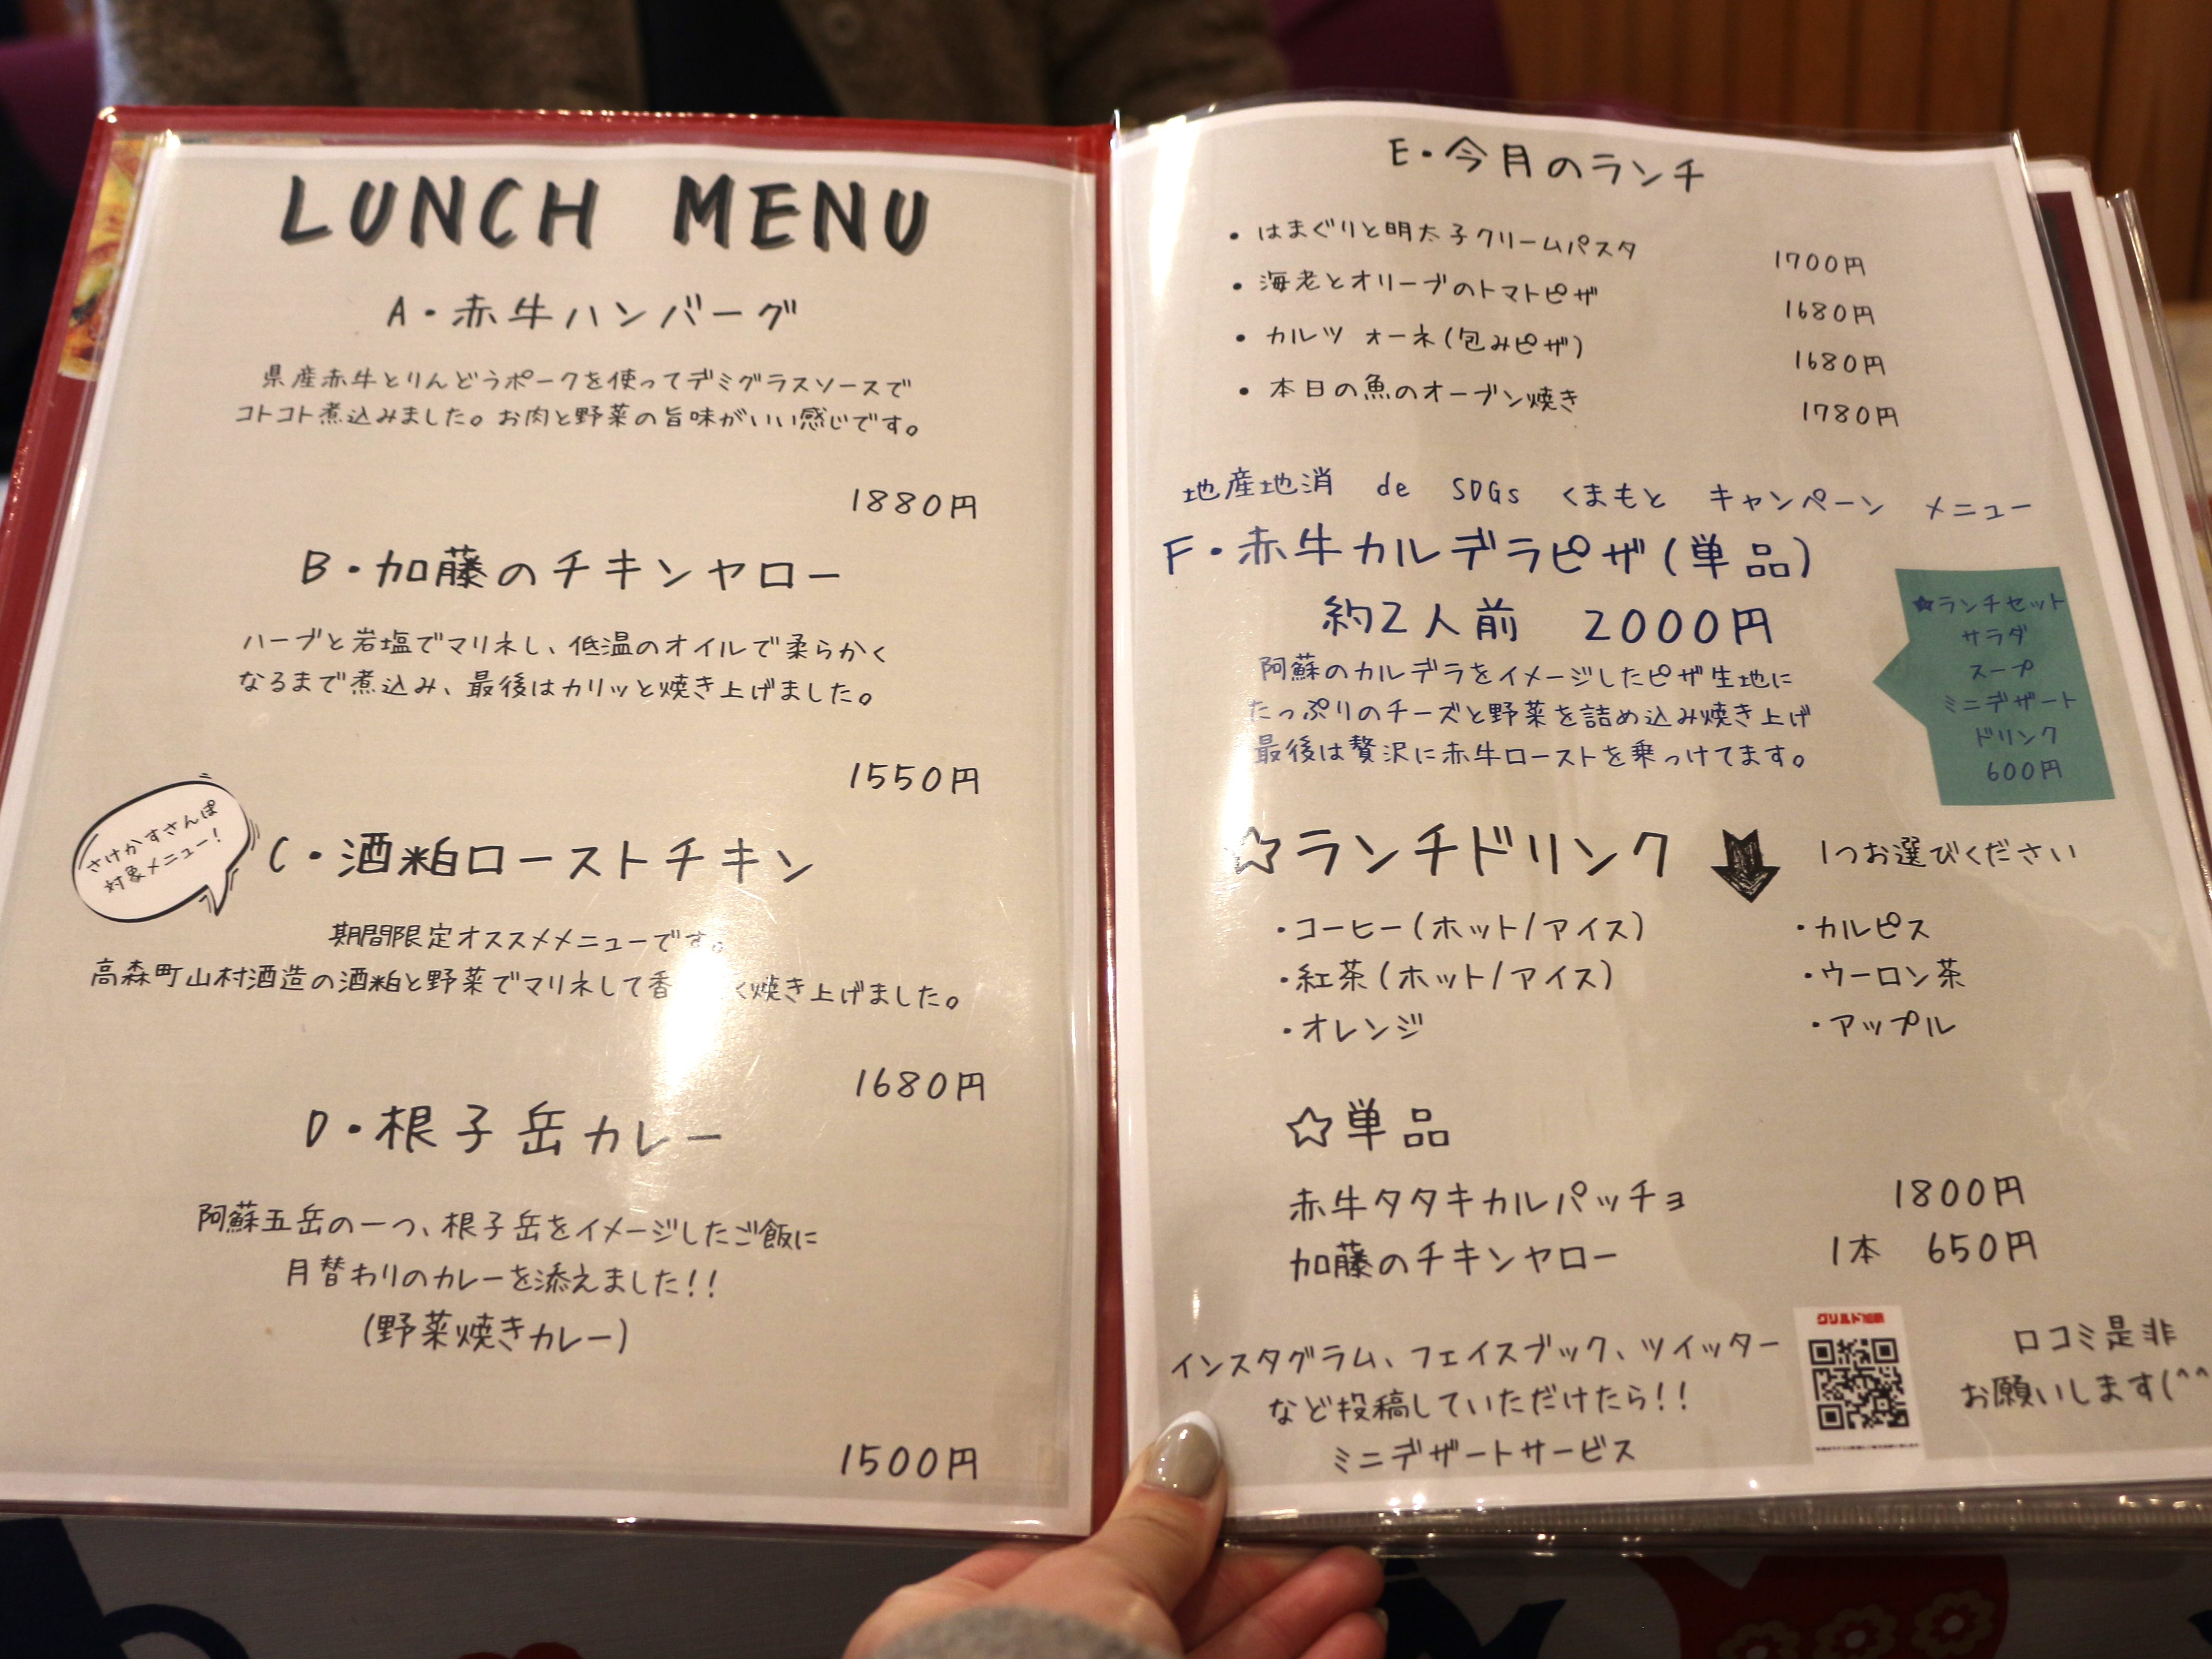 LUNCH MENU
A・赤牛ハンバーグ
県産赤牛とりんどうポークを使ってデミグラスソースで
コトコト煮込みました。お肉と野菜の旨味がいい感じです。
1880円
B・加藤のチキンヤロー
ハーブと岩塩でマリネし、低温のオイルで柔らかく
なるまで煮込み、最後はカリッと焼き上げました。
1550円
さけかすさんぽ
対象メニュー!
C・酒粕ローストチキン
期間限定オススメメニューです。
高森町山村酒造の酒粕と野菜でマリネして香 く焼き上げました。
1680円
D・根子岳カレー
阿蘇五岳の一つ、根子岳をイメージしたご飯に
月替わりのカレーを添えました!!
(野菜焼きカレー)
1500円
E・今月のランチ
・はまぐりと明太子クリームパスタ 1700円
・海老とオリーブのトマトピザ 1680円
・カルツォーネ(包みピザ) 1680円
・本日の魚のオーブン焼き 1780円
地産地消 de SDGs くまもと キャンペーン メニュー
F・赤牛カルデラピザ(単品)
約2人前 2000円
阿蘇のカルデラをイメージしたピザ生地に
たっぷりのチーズと野菜を詰め込み焼き上げ
最後は贅沢に赤牛ローストを乗っけてます。
★ランチセット
サラダ
スープ
ミニデザート
ドリンク
600円
☆ランチドリンク 1つお選びください
・コーヒー(ホット/アイス) ・カルピス
・紅茶(ホット/アイス) ・ウーロン茶
・オレンジ ・アップル
☆単品
赤牛タタキカルパッチョ 1800円
加藤のチキンヤロー 1本 650円
インスタグラム、フェイスブック、ツイッター
など投稿していただけたら!!
ミニデザートサービス
口コミ是非
お願いします(^^